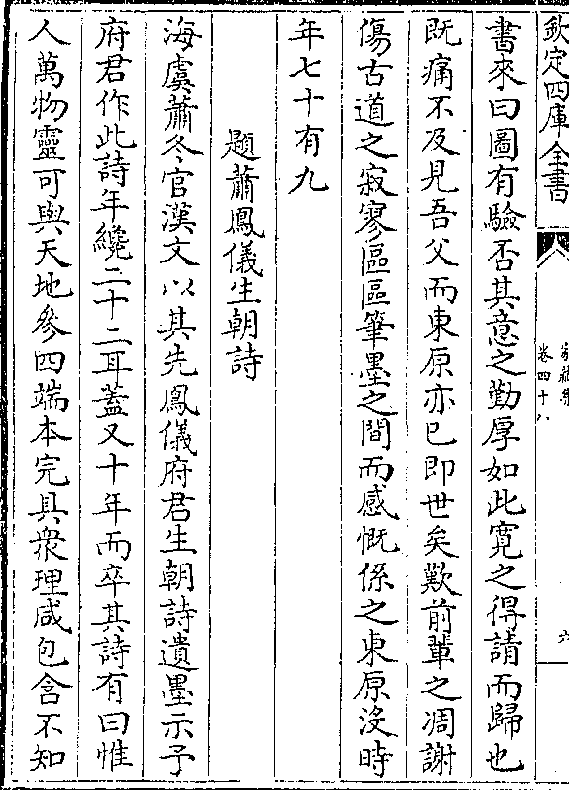 欽定四庫全書
家藏集
卷四十八
六
書來曰圖有驗否其意之勤厚如此寛之得請而歸也
既痛不及見吾父而東原亦已即世矣歎前輩之凋謝
傷古道之寂寥區區筆墨之間而感慨係之東原沒時
年七十有九
題蕭鳳儀生朝詩
海虞蕭冬官漢文以其先鳳儀府君生朝詩遺墨示予
府君作此詩年纔二十二耳蓋又十年而卒其詩有曰惟
人萬物靈可與天地參四端本完具衆理咸包含不知